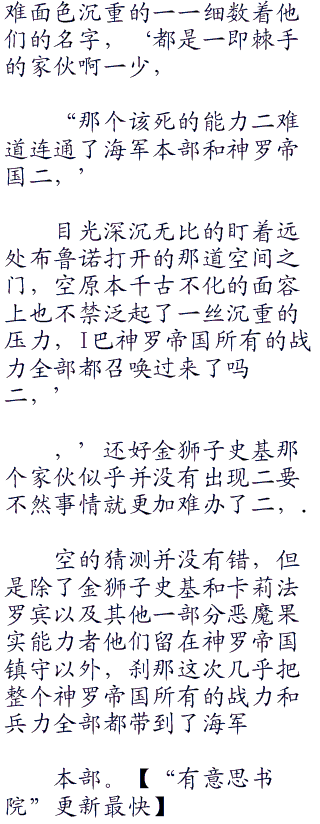 难面色沉重的一一细数着他
们的名字，‘都是一即棘手
的家伙啊一少，
“那个该死的能力二难
道连通了海军本部和神罗帝
国二，’
目光深沉无比的盯着远
处布鲁诺打开的那道空间之
门，空原本千古不化的面容
上也不禁泛起了一丝沉重的
压力，I巴神罗帝国所有的战
力全部都召唤过来了吗
二，’
，’还好金狮子史基那
个家伙似乎并没有出现二要
不然事情就更加难办了二，．
空的猜测并没有错，但
是除了金狮子史基和卡莉法
罗宾以及其他一部分恶魔果
实能力者他们留在神罗帝国
镇守以外，刹那这次几乎把
整个神罗帝国所有的战力和
兵力全部都带到了海军
本部。【“有意思书
院”更新最快】